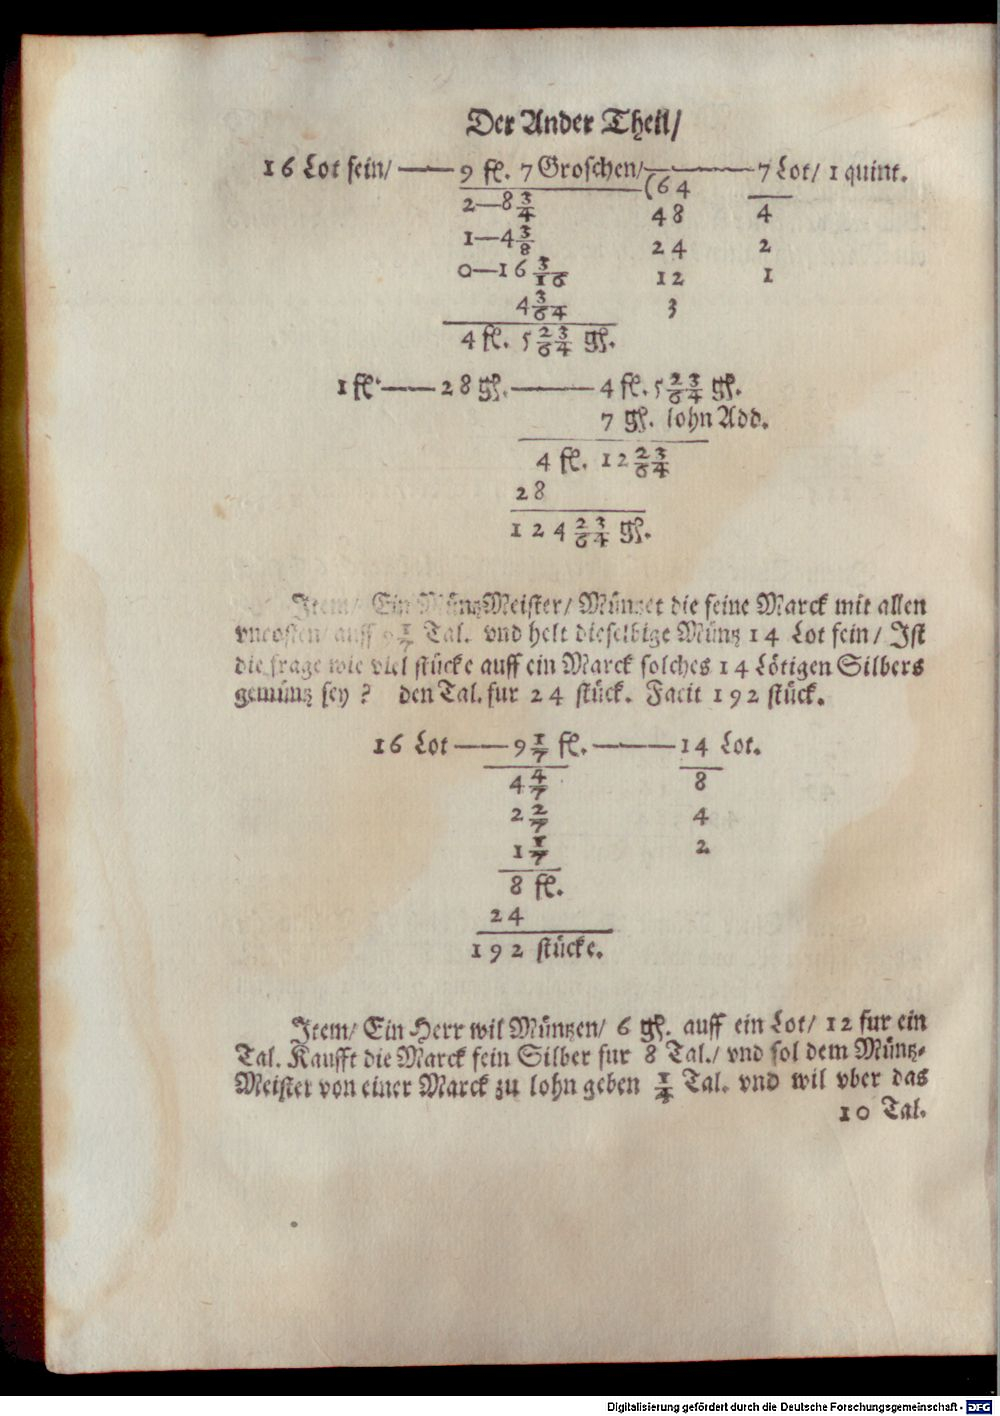 Der Ander Theil/
16 Lot fein/ —— 9 fl. 7 Groschen/ —— 7 Lot/ 1 quint.
(64
2—8 3/4 48 4
1—4 3/8 24 2
0—16 3/16 12 1
4 3/64 3
4 fl. 5 23/64 gl.
1 fl. —— 28 gl. —— 4 fl. 5 23/64 gl.
7 gl. lohn Add.
4 fl. 12 23/64
28
124 23/64 gl.
Item/ Ein MüntzMeister/ Müntzet die feine Marck mit allen
vncosten/ auff 9 1/7 Tal. vnd helt dieselbige Müntz 14 Lot fein/ Ist
die frage wie viel stücke auff ein Marck solches 14 Lötigen Silbers
gemüntz sey? den Tal. fur 24 stück. Facit 192 stück.
16 Lot —— 9 1/7 fl. —— 14 Lot.
4 4/7 8
2 2/7 4
1 1/7 2
8 fl.
24
192 stücke.
Item/ Ein Herr wil Müntzen/ 6 gl. auff ein Lot/ 12 fur ein
Tal. Kaufft die Marck fein Silber fur 8 Tal./ vnd sol dem Müntz-
Meister von einer Marck zu lohn geben 1/4 Tal. vnd wil vber das
10 Tal.
Digitalisierung gefördert durch die Deutsche Forschungsgemeinschaft - DFG